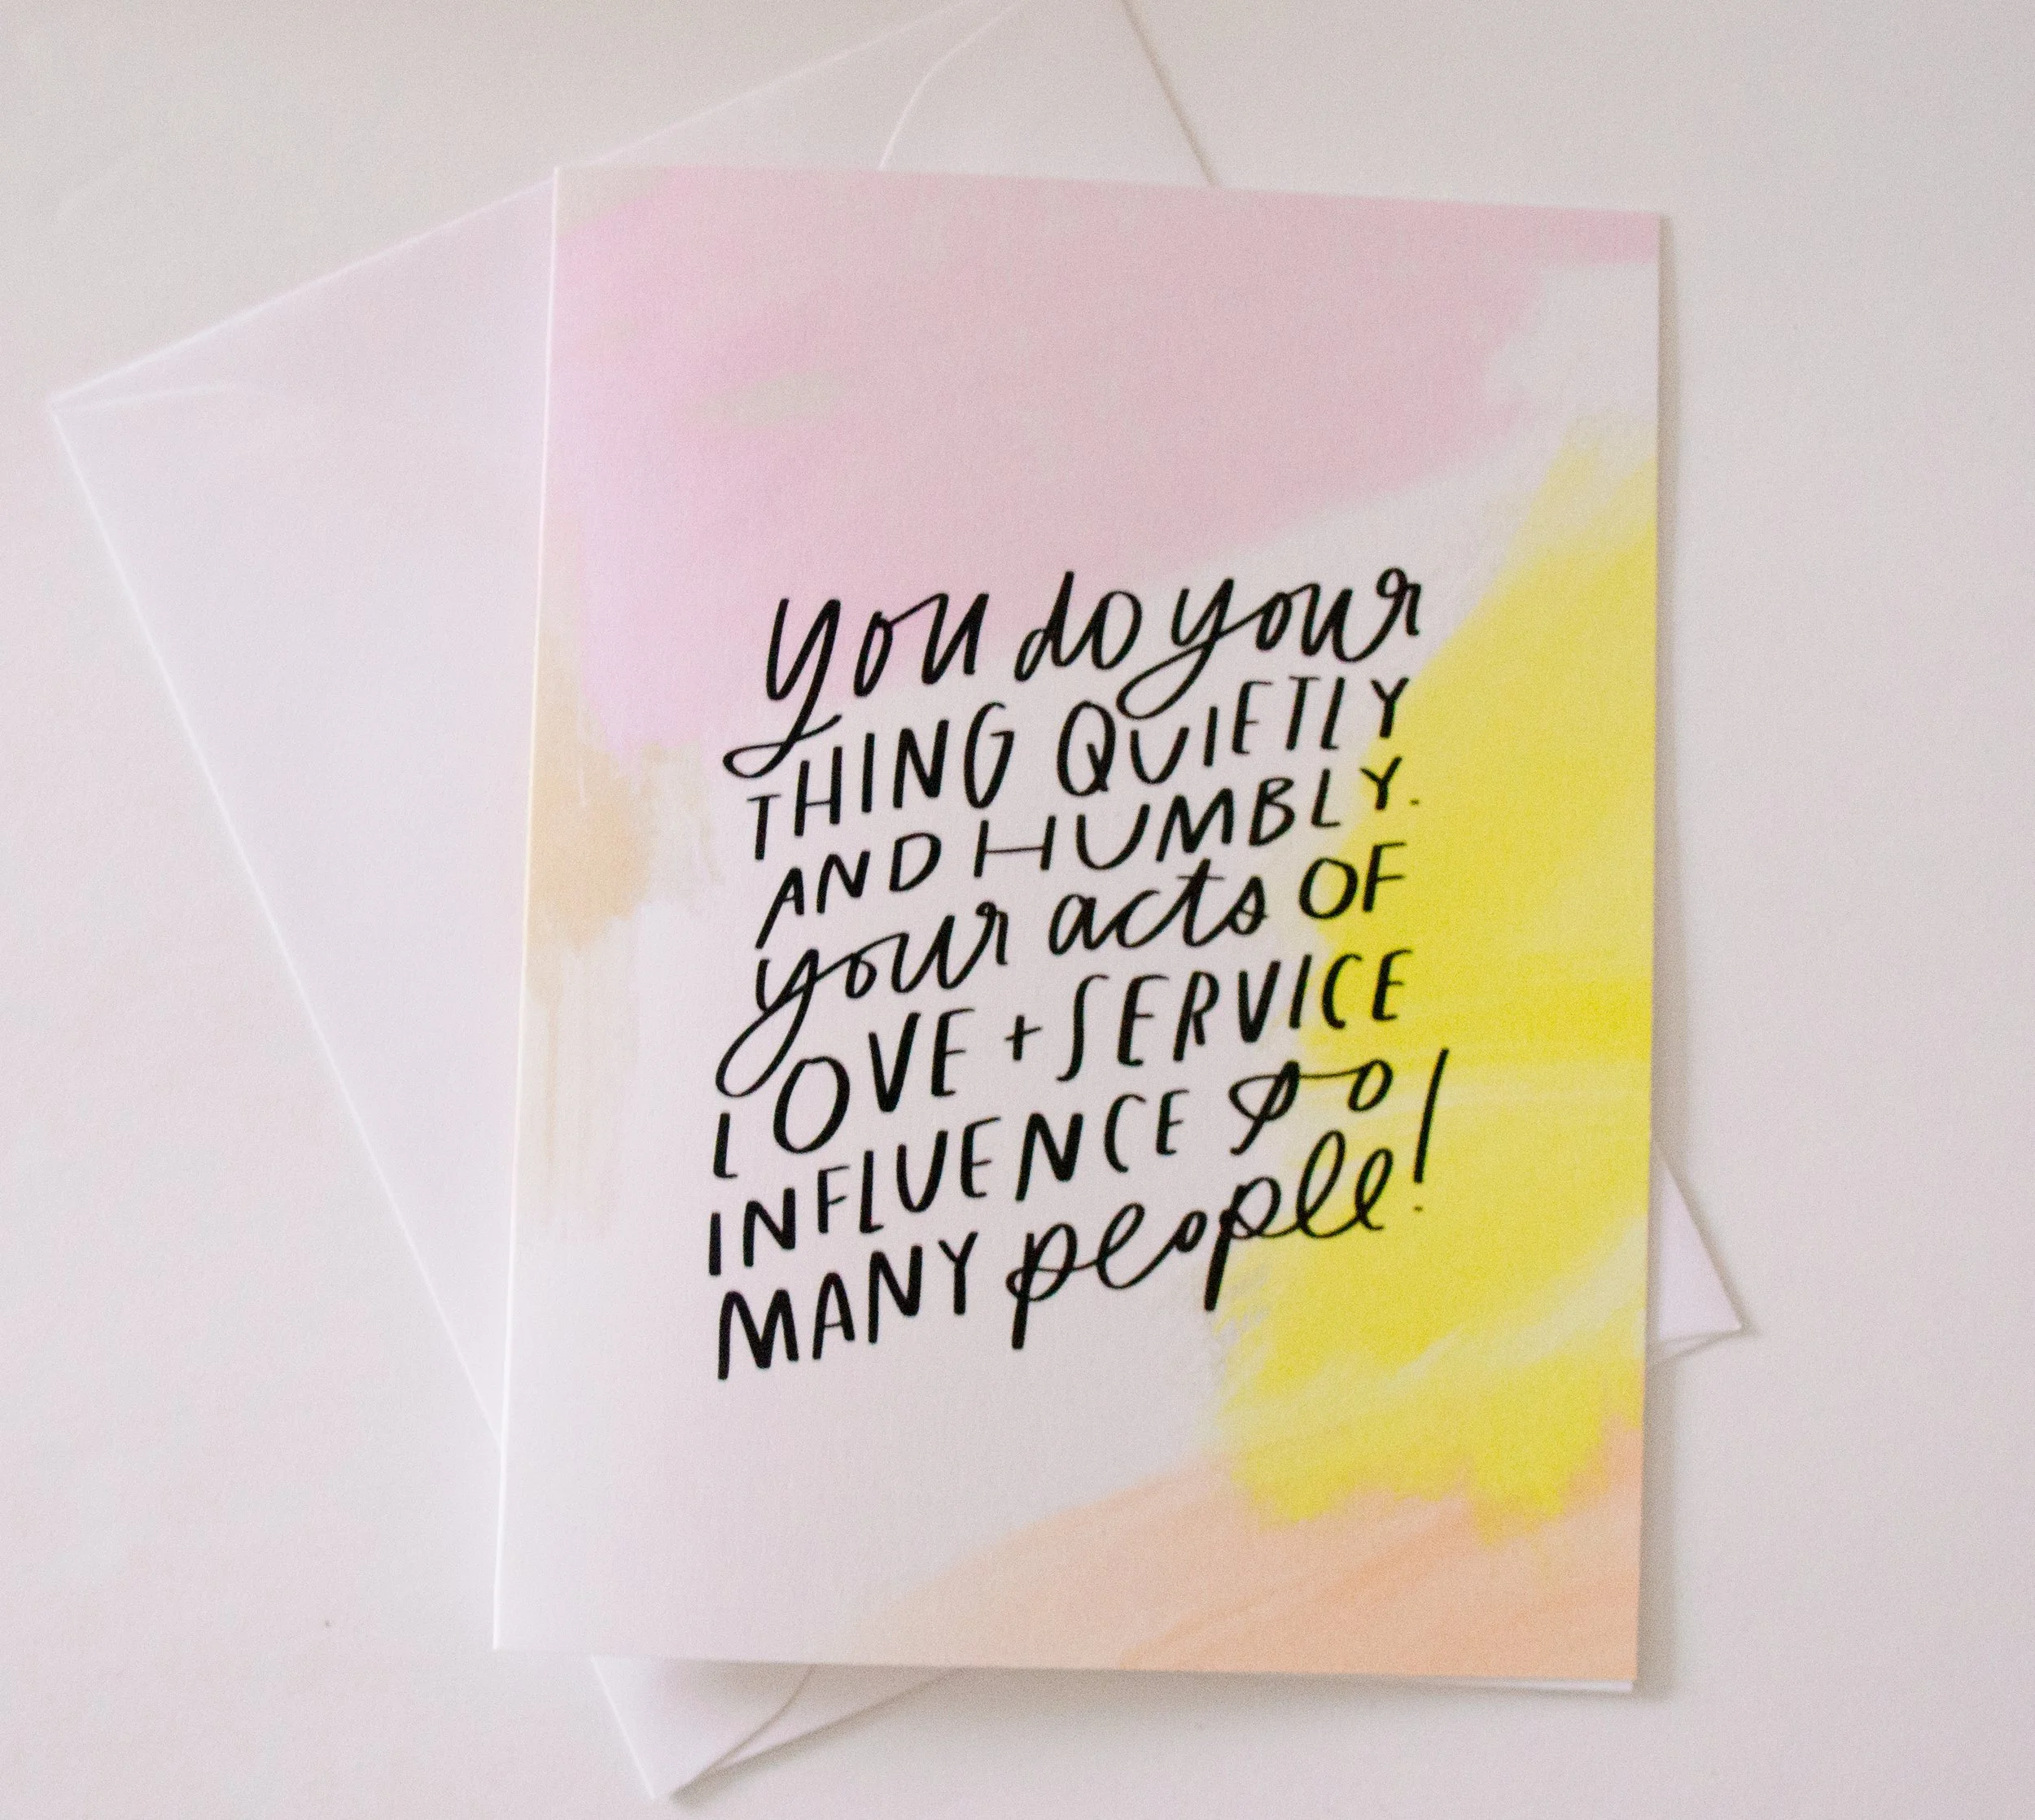 you do your
THING QUIETLY
AND HUMBLY.
your acts OF
LOVE + SERVICE
INFLUENCE so
MANY people!